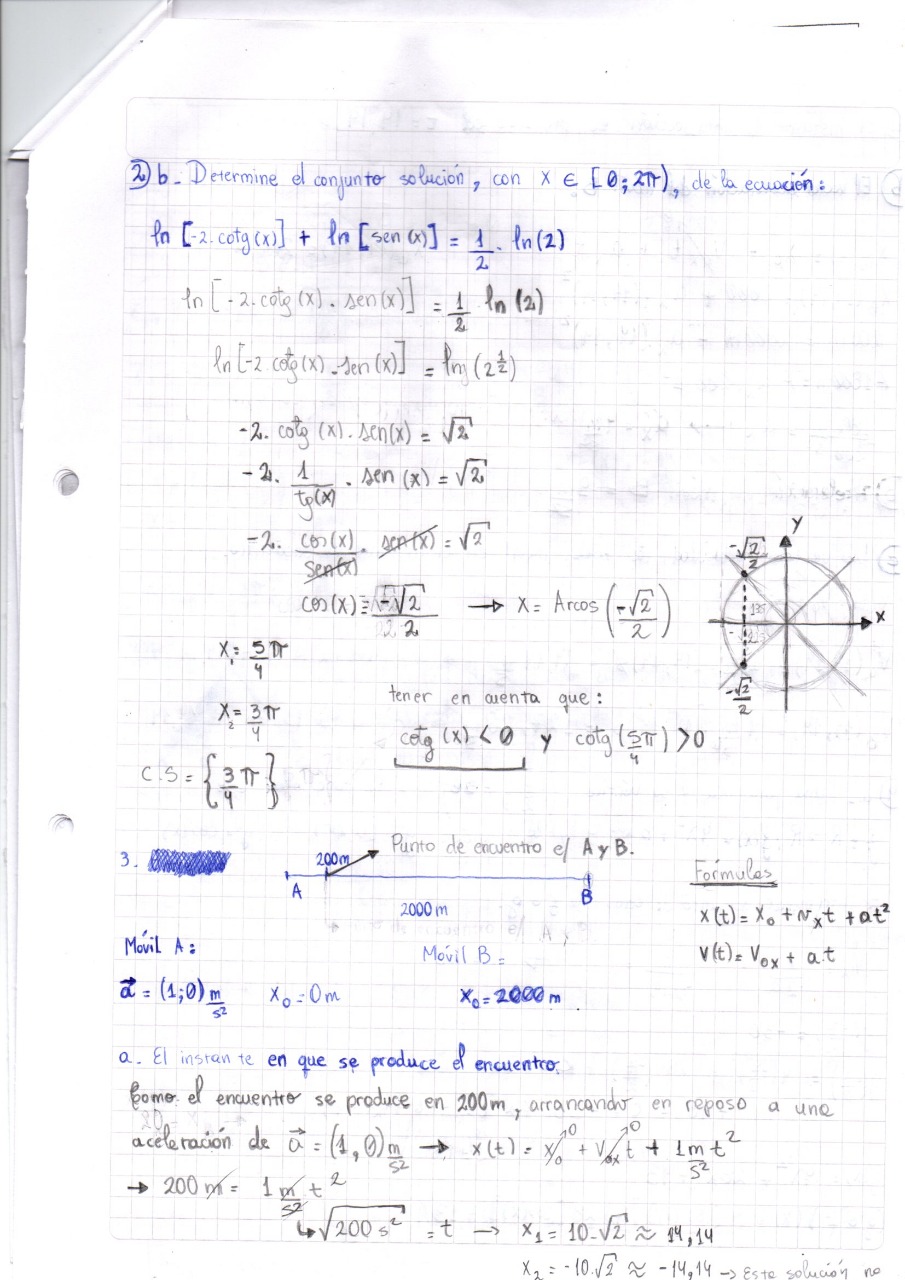 2) b. Determine el conjunto solución, con x ∈ [0; 2π), de la ecuación:
ln [-2. cotg(x)] + ln [sen(x)] = 1/2 . ln(2)
ln [-2. cotg(x) . sen(x)] = 1/2 ln (2)
ln [-2 cotg(x) . sen(x)] = ln (2^1/2)
-2. cotg (x) . sen(x) = √2
-2. 1/tg(x) . sen (x) = √2
-2. cos(x)/sen(x) . sen(x) = √2
cos(x) = -√2/2 → x = Arcos (-√2/2)
Y
-√2/2
135
X
-√2/2
X₁ = 5/4 π
X₂ = 3/4 π
tener en cuenta que:
cotg (x) < 0 y cotg (5π/4) > 0
C.S = {3/4 π}
3.
200m Punto de encuentro e/ A y B.
A B
2000 m
Fórmulas
x(t) = x₀ + vₓt + at²
v(t) = V₀ₓ + a.t
Móvil A: Móvil B =
a⃗ = (1;0) m/s² X₀ = 0m X₀ = 2000 m
a. El instante en que se produce el encuentro.
Como el encuentro se produce en 200m, arrancando en reposo a una
aceleración de a⃗ = (1,0) m/s² → x(t) = x₀ ↗0 + V₀ₓ ↗0 t + 1 m/s² t²
→ 200 m = 1 m/s² t²
↳ √200 s² = t → x₁ = 10.√2 ≈ 14,14
x₂ = -10.√2 ≈ -14,14 → Esta solución no